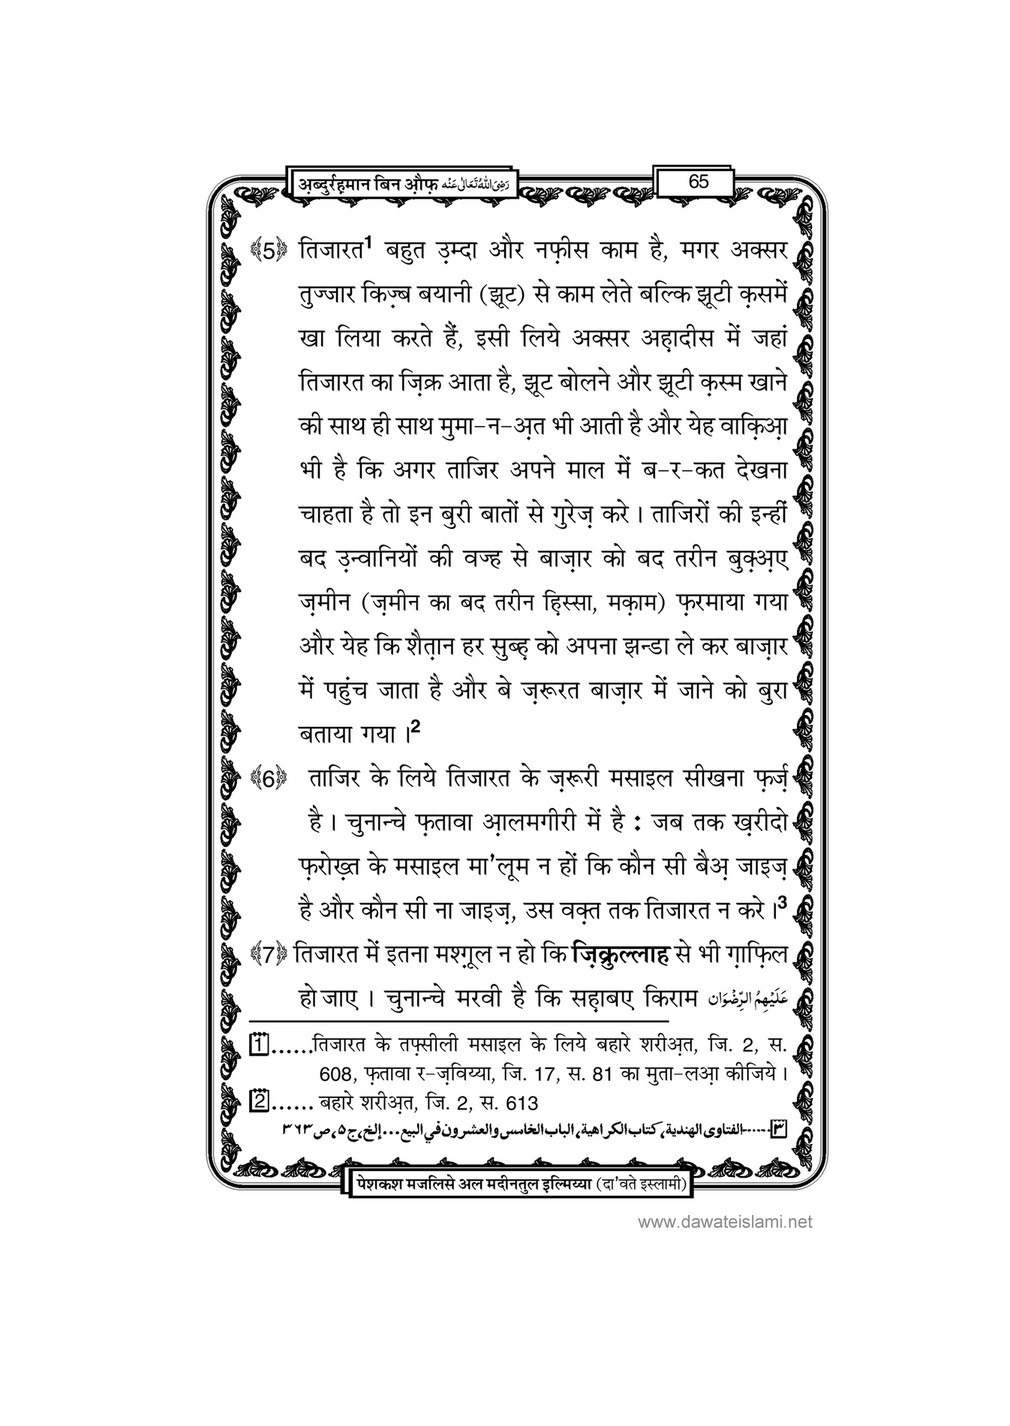 अ़ब्दुर्रह़मान बिन औ़फ़ رَضِیَ اللّٰہُ تَعَالٰی عَنْہ 65
﴾5﴿ तिजारत¹ बहुत उ़म्दा और नफ़ीस काम है, मगर अक्सर
तुज्जार किज़्ब बयानी (झूट) से काम लेते बल्कि झूटी क़समें
खा लिया करते हैं, इसी लिये अक्सर अह़ादीस में जहां
तिजारत का ज़िक्र आता है, झूट बोलने और झूटी क़स्म खाने
की साथ ही साथ मुमा-न-अ़त भी आती है और येह वाक़िआ़
भी है कि अगर ताजिर अपने माल में ब-र-कत देखना
चाहता है तो इन बुरी बातों से गुरेज़ करे । ताजिरों की इन्हीं
बद उ़न्वानियों की वज्ह से बाज़ार को बद तरीन बुक़्अ़ए
ज़मीन (ज़मीन का बद तरीन हि़स्सा, मक़ाम) फ़रमाया गया
और येह कि शैत़ान हर सुब्ह़ को अपना झन्डा ले कर बाज़ार
में पहुंच जाता है और बे ज़रूरत बाज़ार में जाने को बुरा
बताया गया ।²
﴾6﴿ ताजिर के लिये तिजारत के ज़रूरी मसाइल सीखना फ़र्ज़
है । चुनान्चे फ़तावा आ़लमगीरी में है : जब तक ख़रीदो
फ़रोख़्त के मसाइल मा'लूम न हों कि कौन सी बैअ़ जाइज़
है और कौन सी ना जाइज़, उस वक़्त तक तिजारत न करे ।³
﴾7﴿ तिजारत में इतना मश्ग़ूल न हो कि ज़िक्रुल्लाह से भी ग़ाफ़िल
हो जाए । चुनान्चे मरवी है कि सह़ाबए किराम عَلَیْہِمُ الرِّضْوَان
1......तिजारत के तफ़्सीली मसाइल के लिये बहारे शरीअ़त, जि. 2, स.
608, फ़तावा र-ज़विय्या, जि. 17, स. 81 का मुता-लआ़ कीजिये ।
2...... बहारे शरीअ़त, जि. 2, स. 613
۳......الفتاوی الهندية، کتاب الکراهية، الباب الخامس والعشرون في البيع...إلخ، ج۵، ص۳۶۳
पेशकश मजलिसे अल मदीनतुल इल्मिय्या (दा'वते इस्लामी)
www.dawateislami.net